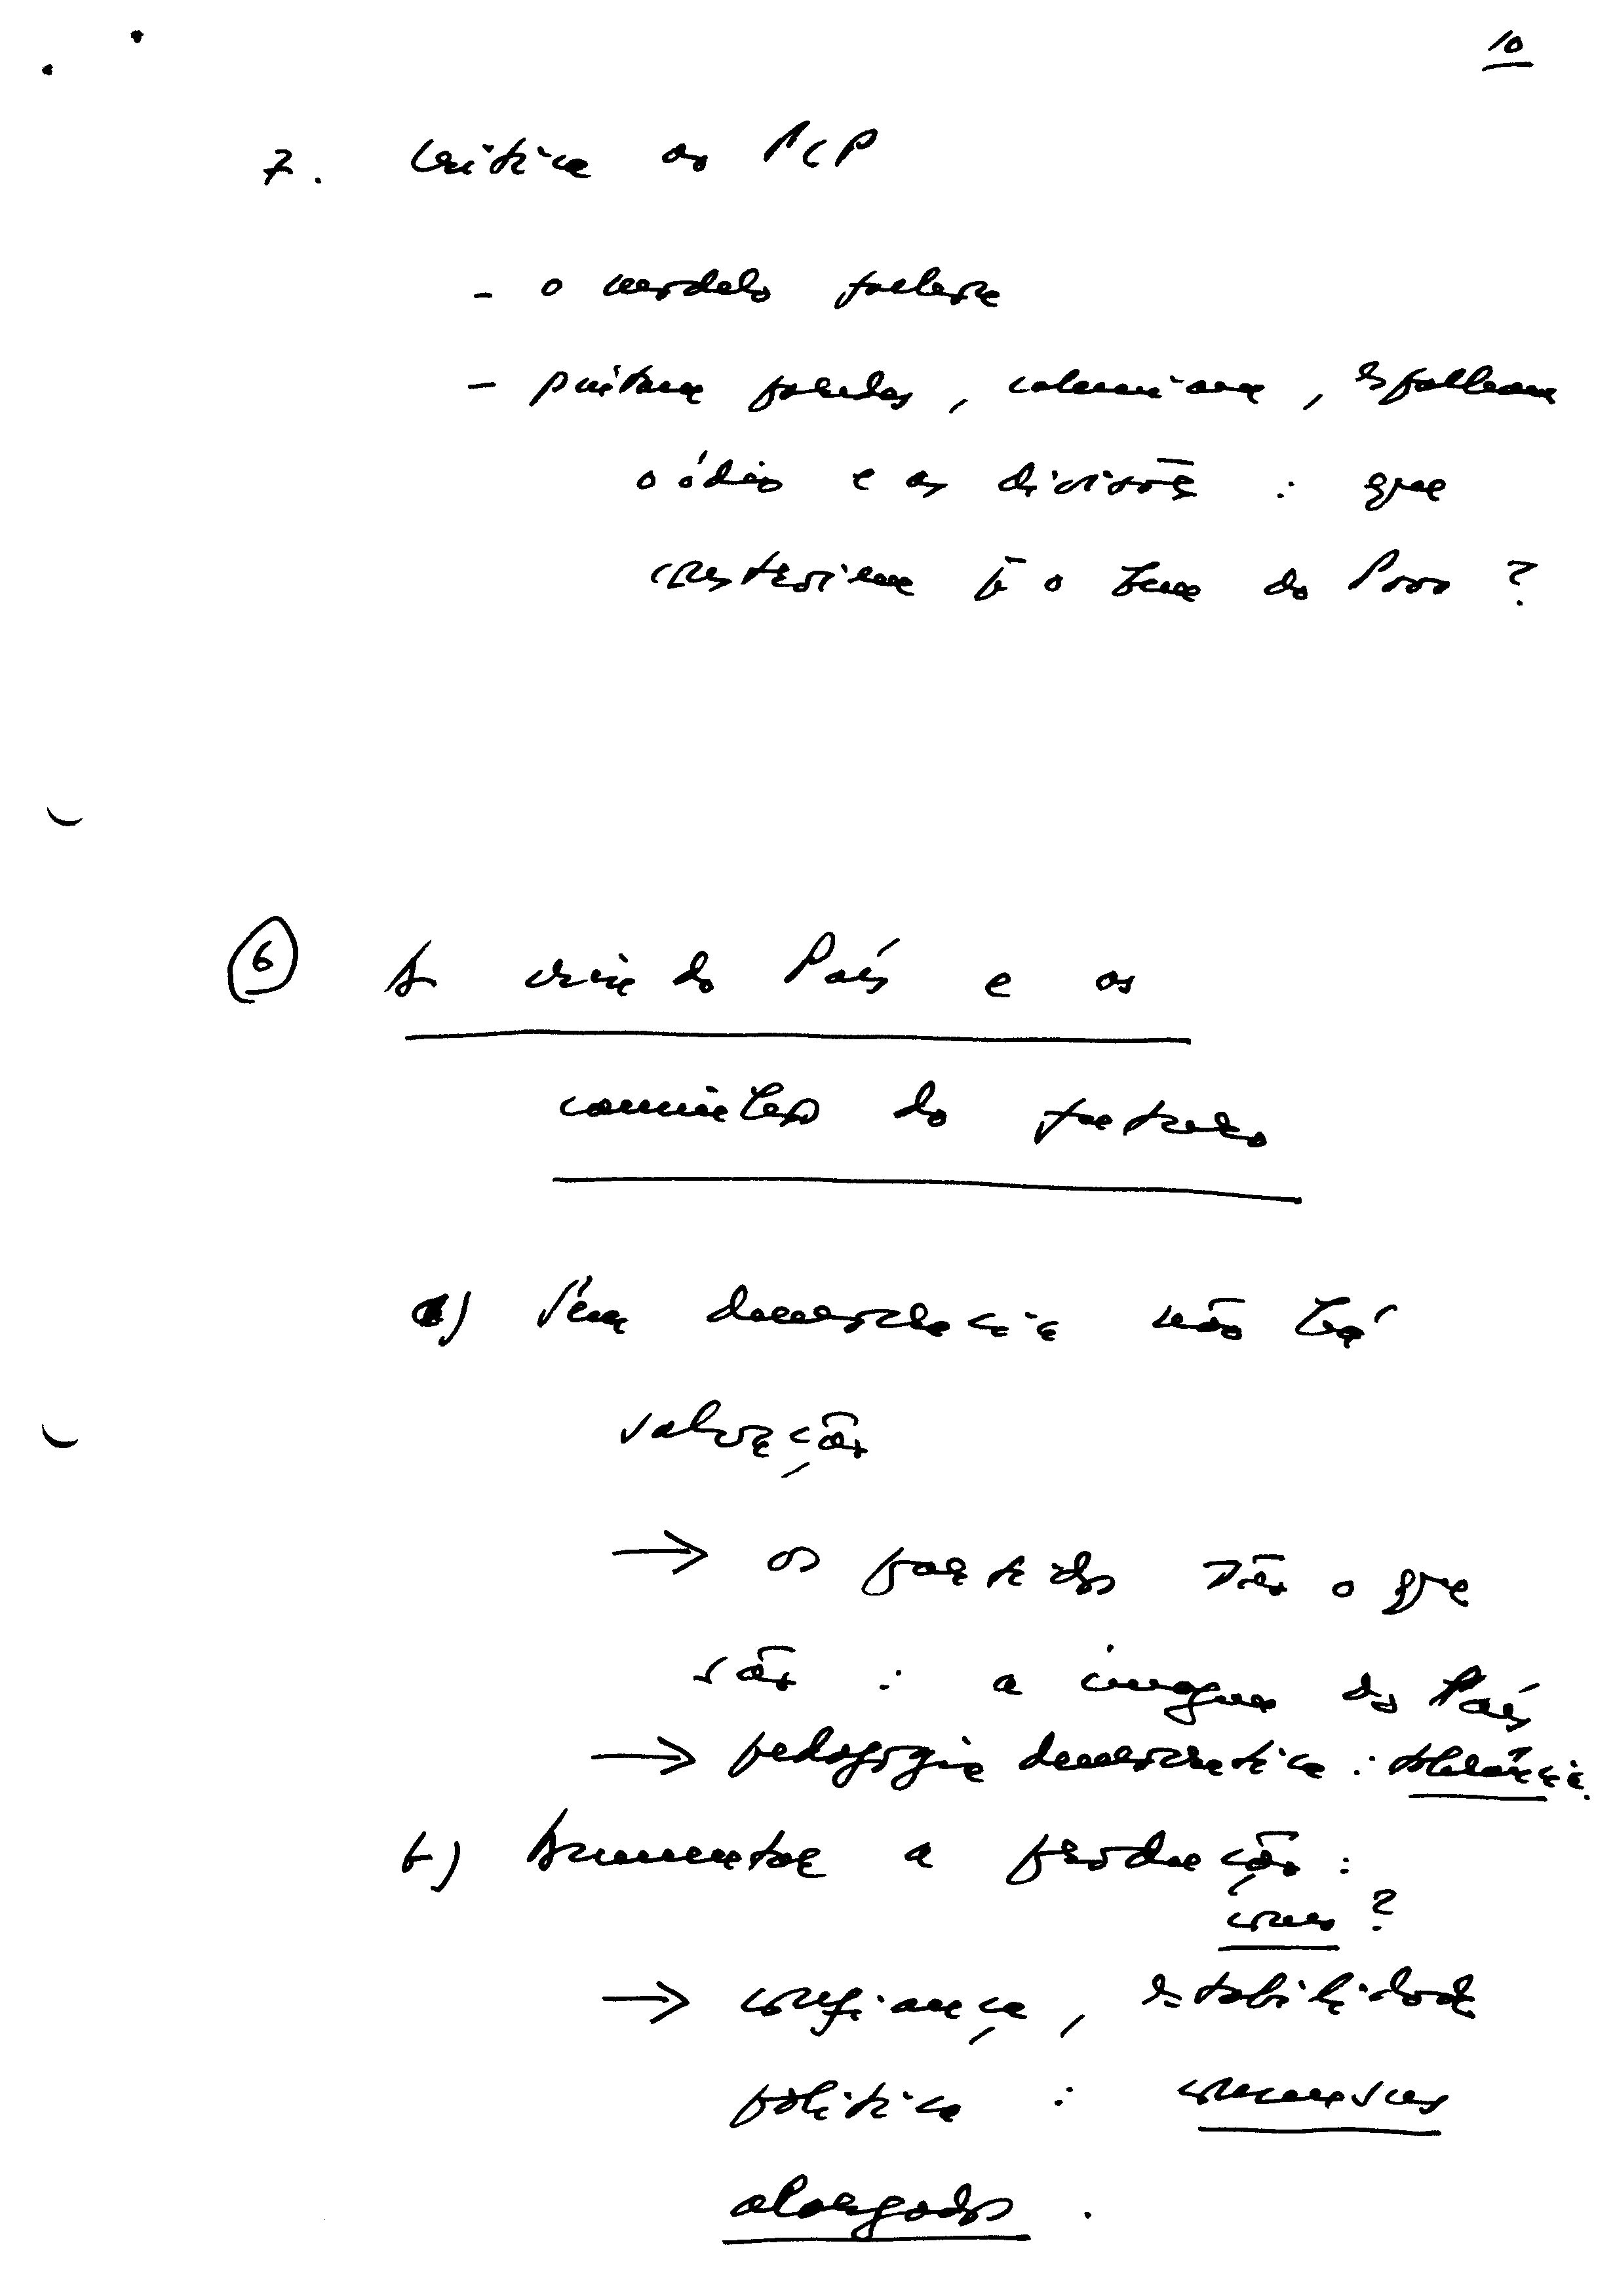 10
7. Crítica ao PCP
- o modelo falhou
- pintam paredes, caluniam, espalham
o ódio e as divisões : que
constroiem p̄ o bem do Povo ?
6 A crise do País e os
caminhos do futuro
a) Sem democracia não há
salvação
→ os partidos são o que
são : a imagem do País
→ pedagogia democrática : tolerância.
b) Aumentar a produção :
como ?
→ confiança, estabilidade
política : consensus
alargados .